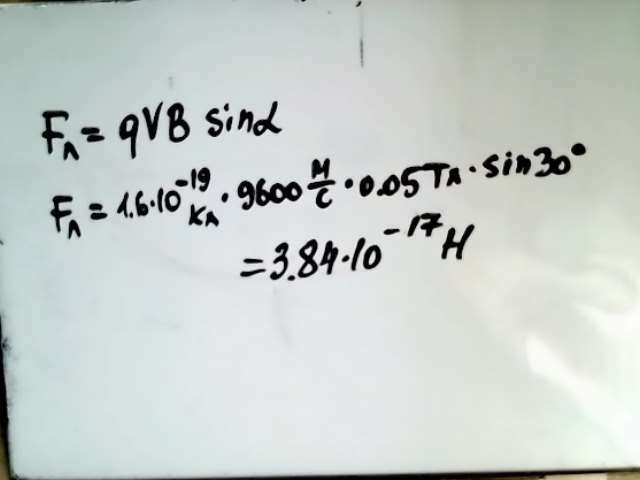 Fл = qVB sinα
Fл = 1.6·10⁻¹⁹ Кл · 9600 М/С · 0.05 Тл · sin30°
= 3.84·10⁻¹⁷ Н